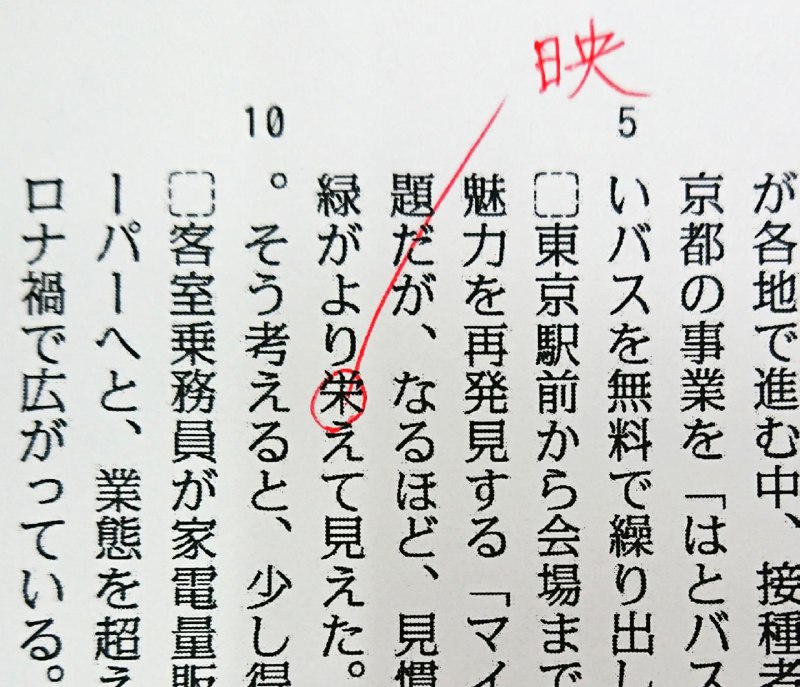 映
が各地で進む中、接種者
京都の事業を「はとバス
5
いバスを無料で繰り出し
東京駅前から会場まで
魅力を再発見する「マイ
題だが、なるほど、見慣
緑がより栄えて見えた。
10
。そう考えると、少し得
客室乗務員が家電量販
ーパーへと、業態を超え
ロナ禍で広がっている。